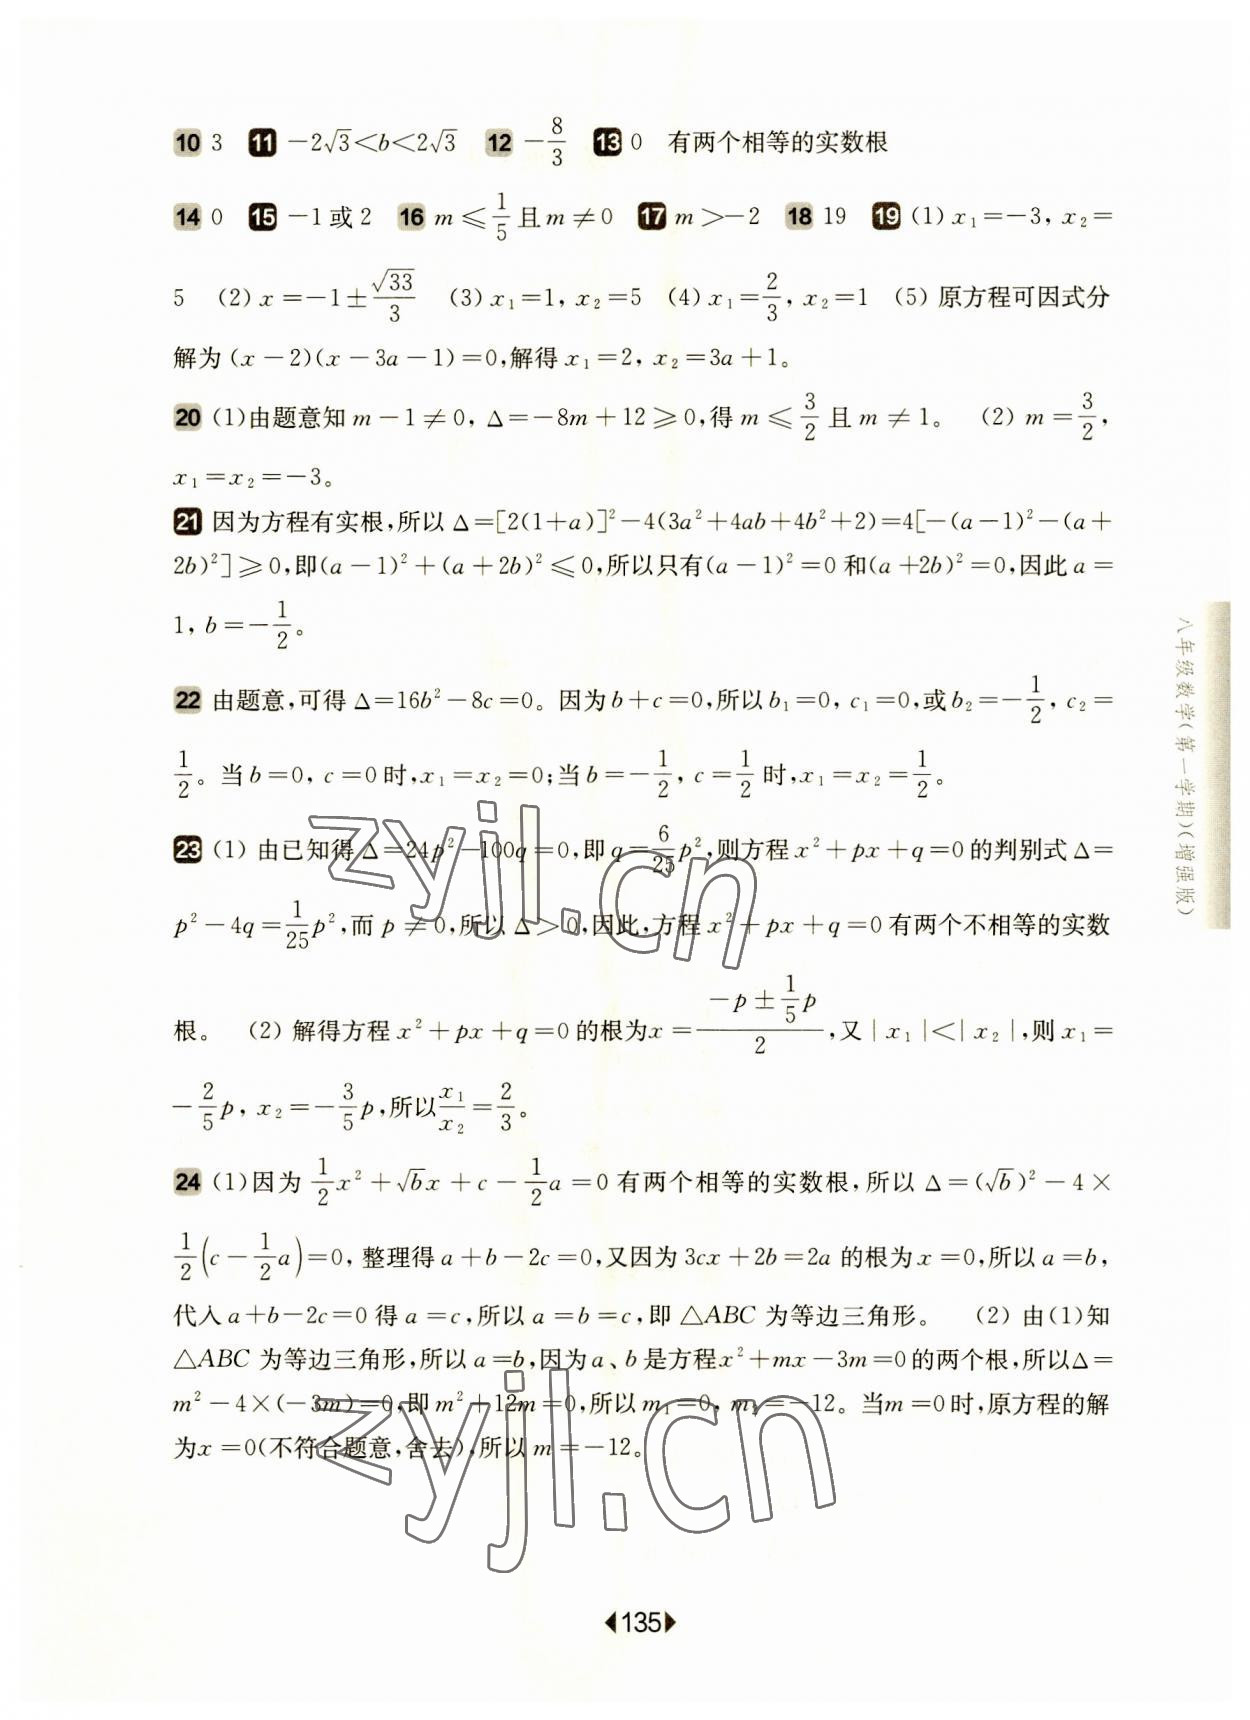 10 3　11 －2√3＜b＜2√3　12 －8/3　13 0　有两个相等的实数根
14 0　15 －1或2　16 m≤1/5且m≠0　17 m＞－2　18 19　19 (1) x₁＝－3，x₂＝
5　(2) x＝－1±√33/3　(3) x₁＝1，x₂＝5　(4) x₁＝2/3，x₂＝1　(5) 原方程可因式分
解为(x－2)(x－3a－1)＝0,解得x₁＝2，x₂＝3a＋1。
20 (1)由题意知m－1≠0，Δ＝－8m＋12≥0,得m≤3/2且m≠1。　(2) m＝3/2，
x₁＝x₂＝－3。
21 因为方程有实根,所以Δ＝[2(1＋a)]²－4(3a²＋4ab＋4b²＋2)＝4[－(a－1)²－(a＋
2b)²]≥0,即(a－1)²＋(a＋2b)²≤0,所以只有(a－1)²＝0和(a＋2b)²＝0,因此a＝
1，b＝－1/2。
22 由题意,可得Δ＝16b²－8c＝0。因为b＋c＝0,所以b₁＝0，c₁＝0,或b₂＝－1/2，c₂＝
1/2。当b＝0，c＝0时,x₁＝x₂＝0;当b＝－1/2，c＝1/2时,x₁＝x₂＝1/2。
23 (1) 由已知得Δ＝24p²－100q＝0,即q＝6/25p²,则方程x²＋px＋q＝0的判别式Δ＝
p²－4q＝1/25p²,而p≠0,所以Δ＞0,因此,方程x²＋px＋q＝0有两个不相等的实数
根。　(2) 解得方程x²＋px＋q＝0的根为x＝(－p±1/5p)/2,又|x₁|＜|x₂|,则x₁＝
－2/5p，x₂＝－3/5p,所以x₁/x₂＝2/3。
24 (1)因为1/2x²＋√bx＋c－1/2a＝0有两个相等的实数根,所以Δ＝(√b)²－4×
1/2(c－1/2a)＝0，整理得a＋b－2c＝0,又因为3cx＋2b＝2a的根为x＝0,所以a＝b,
代入a＋b－2c＝0得a＝c,所以a＝b＝c,即△ABC为等边三角形。　(2) 由(1)知
△ABC为等边三角形,所以a＝b,因为a、b是方程x²＋mx－3m＝0的两个根,所以Δ＝
m²－4×(－3m)＝0,即m²＋12m＝0,所以m₁＝0，m₂＝－12。当m＝0时,原方程的解
为x＝0(不符合题意,舍去),所以m＝－12。
八年级数学(第一学期)(增强版)
zyjl.cn
zyjl.cn
135